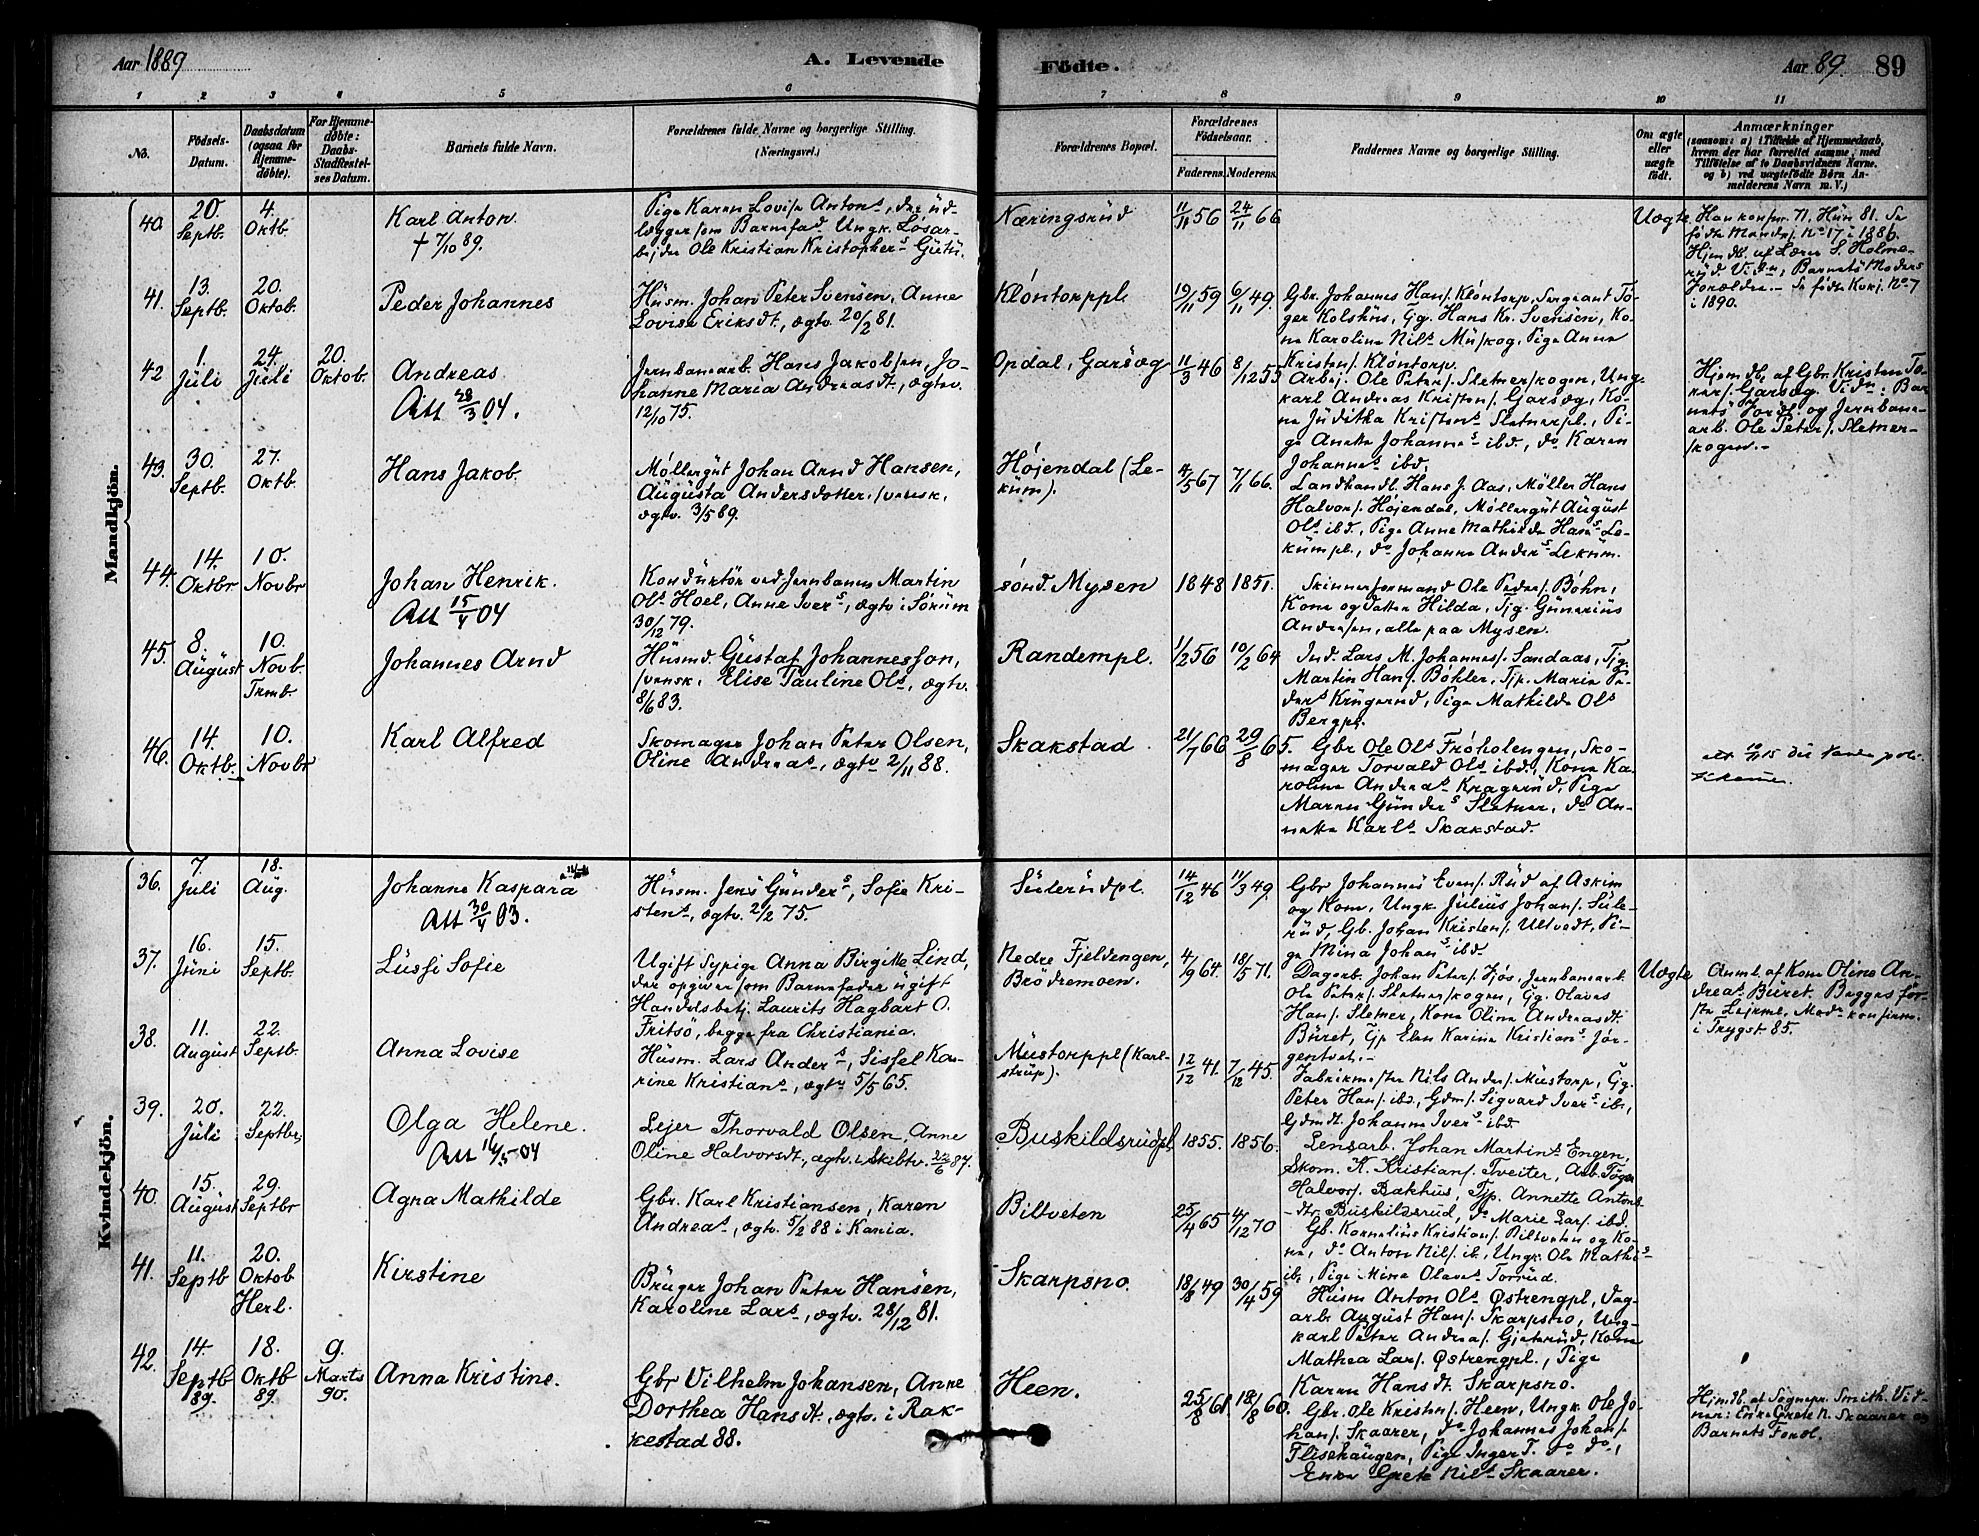 Aar 1889
A. Levende
Födte.
Aar 89. 89
1 2 3 4 5 6 7 8 9 10 11
No.
Födsels-
Datum.
Daabsdatum
(ogsaa for
Hjemme-
döbte).
For Hjemme-
döbte:
Daabs-
Stadfæstel-
ses Datum.
Barnets fulde Navn.
Forældrenes fulde Navne og borgerlige Stilling.
(Næringsvei.)
Forældrenes Bopæl.
Forældrenes
Födselsaar.
Faderens. Moderens.
Faddernes Navne og borgerlige Stilling.
Om ægte
eller
uægte
født.
Anmærkninger
(saasom: a) i Tilfælde af Hjemmedaab,
hvem der har forrettet samme, med
Tilföielse af to Daabsvidners Navne,
og b) ved uægtefödte Börn An-
melderens Navn m. V.)
Mandkjön.
40.
20.
Septb.
4.
Oktb.
Karl Anton.
† 7/10 89.
Pige Karen Lovise Antons, der ud-
lægger som Barnefad. Ungk. Løsar-
bejder Ole Kristian Kristophers Gutu.
Næringsrud
11/11 56 24/11 66
Uægte
Han konfirm. 71. Hun 81. Se
fødte Mandkj. No 17 i 1886.
Hjemdb. af Lærer S. Holme-
rud. Vidn, Barnets Moders
Forældre. – Se fødte Kvkj. No 7
i 1890.
41.
13.
Septb.
20.
Oktob.
Peder Johannes
Husm. Johan Peter Svensen, Anne
Lovise Eriksdt., ægtv. 20/2 81.
Klóntorppl.
19/11 59 6/11 49.
Gbr. Johannes Hans. Klóntorp, Sergeant To-
ger Kolshus, Gg. Hans Kr. Svensen, Ko-
ne Karoline Nils Muskog, Pige Anna
Kristens. Klóntorp.
42
1.
Juli
24.
Juli
20.
Oktob.
Andreas
Att 28/3 04.
Jernbanearb. Hans Jakobsen, Jo-
hanne Maria Andreasdt., ægtv.
12/10 75.
Opdal, Garseg
11/3 46 8/12 53
Arbej. Ole Peters. Sletnerskogen, Ung-
karl Andreas Kristens. Garseg, Ko-
ne Juditha Kristens Sletnerpl., Pi-
ge Anette Johannes ibd., do Karen
Johannes ibd.
Hjemdb. af Gbr. Kristen To-
kers. Garseg. Vidn: Bar-
nets Foræl. og Jernbane-
arb. Ole Peters. Sletner-
skogen. –
43.
30.
Septb.
27.
Oktb.
Hans Jakob.
Møllergut Johan Arnd Hansen,
Augusta Andersdotter, svensk,
ægtv. 3/5 89.
Højendal (Le-
kum).
4/5 67 7/11 66.
Landhandl. Hans J. Aas, Møller Hans
Halvors. Højendal, Møllergut August
Ols ibd., Pige Anne Mathilde Hans Le-
kumpl., do Johanne Anders Lekum.
44.
14.
Oktbr
10.
Novbr
Johan Henrik.
Att 15/4 04
Konduktør ved Jernbanen Martin
Ols Hoel, Anne Ivers, ægtv i Sørum
30/12 79.
sønd. Mysen
1848 1851.
Skinnerformand Ole Peders. Bøhn,
Kone og Datter Hilda, Tjg. Gunerius
Andersen, alle paa Mysen.
45.
8.
August
10.
Novb.
Trømb
Johannes Arnd
Husmd. Gustaf Johannesson,
svensk, Elise Pauline Ols, ægtv.
8/6 83.
Randempl.
1/2 56 10/2 64
Ind. Lars M. Johannes. Sandaas, Tjg.
Martin Hans. Bøhler, Tjp. Marie Pe-
ders Krugerud, Pige Mathilde Ols
Bergpl.
46.
14.
Oktb.
10.
Novbr
Karl Alfred
Skomager Johan Peter Olsen,
Oline Andreas, ægtv 2/11 88.
Skakstad.
21/7 66 29/8 65.
Gbr Ole Ols Frøholengen, Sko-
mager Torvald Ols ibd., Kone Ka-
roline Andreas Kragerud, Pige
Maren Gunders Sletner, do An-
nette Karls Skakstad.
Kvindekjön.
36.
7.
Juli
18.
Aug.
Johanne Kaspara
Att 30/4 03.
Husm. Jens Gunders, Sofie Kri-
stens, ægtv. 2/2 75.
Sulerudpl.
14/12 46 11/3 49.
Gbr Johannes Evens. Rud af Askim
og Kone, Ungk. Julius Johans. Sule-
rud, Gb. Johan Kristens. Ultvedt, Pi-
ge Mina Johans ibd.
37.
16.
Juni
15.
Septb.
Lussi Sofie
Ugift Sypige Anna Birgitte Lind,
der opgiver som Barnefader ugift
Handelsbetj. Laurits Hagbart O.
Fritsö, begge fra Christiania.
Nedre Fjeldengen,
Brödremoen.
4/9 64. 18/5 71.
Dagarb. Johan Peters. Fjøs, Jernbanearb.
Ole Peters. Sletnerskogen, Gg. Olaves
Hans. Sletner, Kone Oline Andreasdt.
Buret, Gp Elen Karine Kristians Jør-
gentvet. –
Uægte
Anml. af Kone Oline An-
dreas Buret. Begges før-
ste Lejrmл. Modr konfirm.
i Trygst. 85.
38.
11.
August
22.
Septb.
Anna Lovise
Husm. Lars Anders, Sissel Ka-
rine Kristians, ægtv 5/5 65.
Mustorppl (Karl-
strup).
12/12 41. 7/12 45.
Fabrikmester Nils Anders. Mustorp, Gg.
Peter Hans. ibd., Gdms. Sigvard Ivers ib.,
Gdmdt. Johanne Ivers ibd.
39.
20.
Juli
22.
Septbr,
Olga Helene.
Att 16/5 04
Lejer Thorvald Olsen, Anne
Oline Halvorsdt., ægtv. i Skibtv. 22/6 87.
Buskildsrudpl
1855. 1856.
Lensarb. Johan Martins Engen,
Skom. K. Kristians. Tveiter, Arb. Toger
Halvors. Bakhus, Tjp. Annette Antons-
dtr Buskildsrud, do Marie Lars. ibd.
40.
15.
August
29.
Septbr
Agna Mathilde
Gbr. Karl Kristiansen, Karen
Andreas, ægtv. 5/2 88 i Kania.
Biltveten
25/4 65 4/12 70
Gb. Kornelius Kristians. Biltveten og Ko-
ne, do Anton Nils. ib., Ungk. Ole Mathis
ib., Pige Mina Olaves Torrud.
41.
11.
Septb
20.
Oktob
Herl.
Kirstine
Bruger Johan Peter Hansen,
Karoline Lars, ægtv. 28/12 81.
Skarpsno.
18/8 49 30/4 59
Husm Anton Ols Østrengpl, Dag-
arb. August Hans. Skarpsno, Ung-
karl Peter Andreas. Gjeterud, Kone
Mathea Lars. Østrengpl., Pige
Karen Hansdt. Skarpsno.
42.
14.
Septb
89.
18.
Oktb
89.
9.
Marts
90.
Anna Kristine.
Gbr Vilhelm Johansen, Anne
Dorthea Hansdt, ægtv. i Rak-
kestad 88.
Heen.
25/8 61. 18/8 60.
Gbr. Ole Kristens. Heen, Ungk. Ole Jo-
hans. Skaarer, do Johannes Johans.
Flisehaugen, Pige Inger T. do do,
Enke Grete Nils Skaarer.
Hjmdb. af Sognepr. Smith. Vid-
ner: Enke Grete N. Skaarer og
Barnets Foræl.